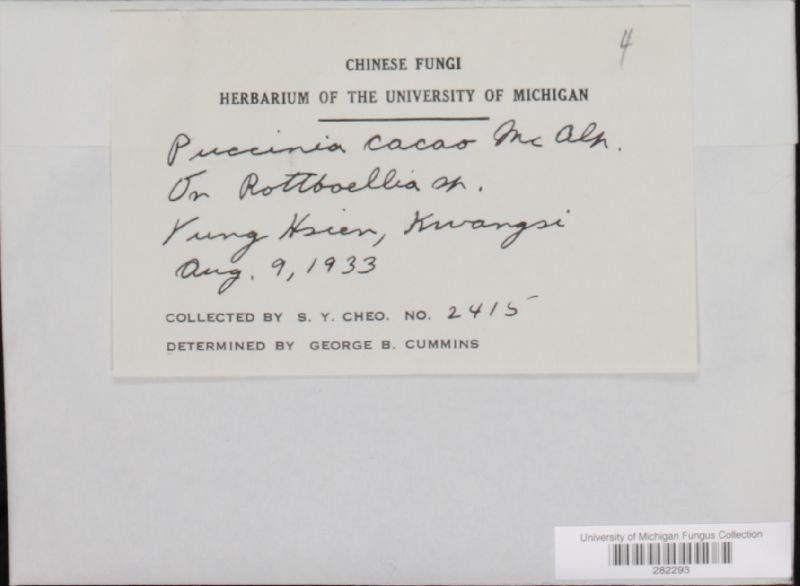 4
CHINESE FUNGI
HERBARIUM OF THE UNIVERSITY OF MICHIGAN
Puccinia cacao Mc Alp.
On Rottboellia sp.
Yung Hsien, Kwangsi
Aug. 9, 1933
COLLECTED BY S. Y. CHEO. NO. 2415
DETERMINED BY GEORGE B. CUMMINS
University of Michigan Fungus Collection
282293